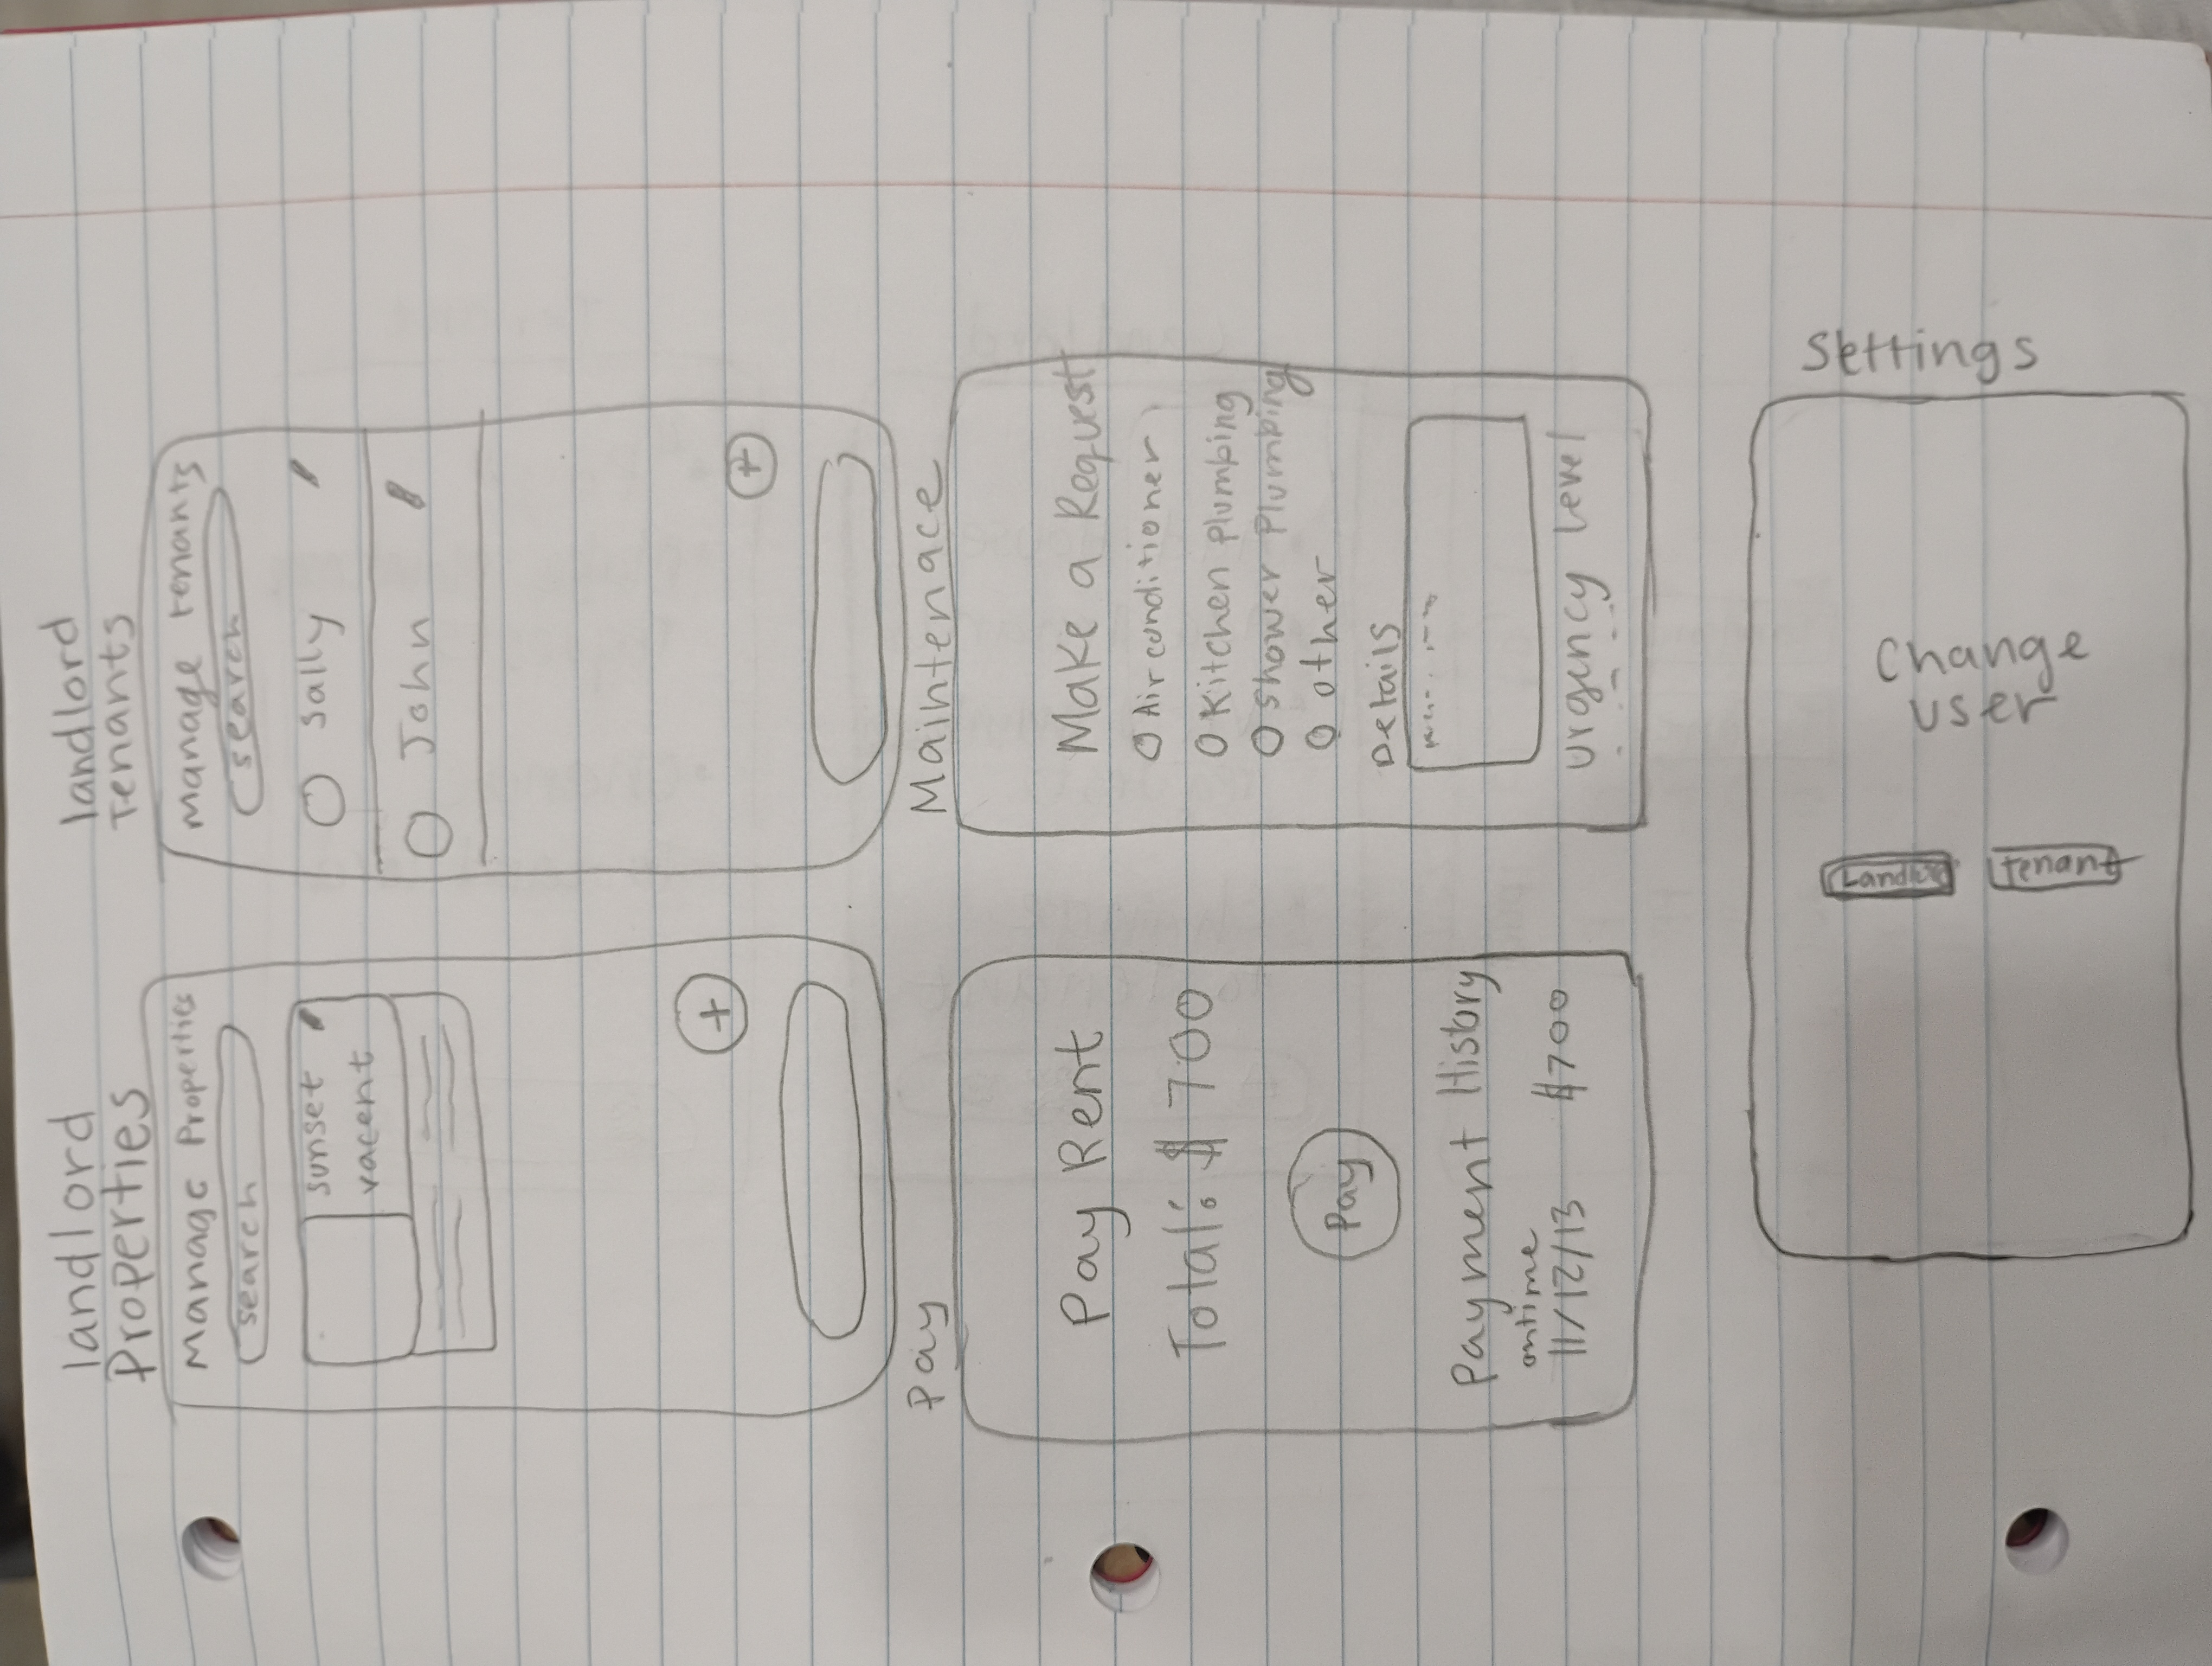 landlord
Properties
Manage Properties
search
sunset
vacent
+
landlord
Tenants
manage tenants
search
Sally
John
+
Pay
Pay Rent
Total: $ 700
Pay
Payment History
ontime
11/12/13 $700
Maintenace
Make a Request
Air conditioner
Kitchen plumbing
Shower Plumbing
other
Details
urgency level
Settings
Change
user
Tenant